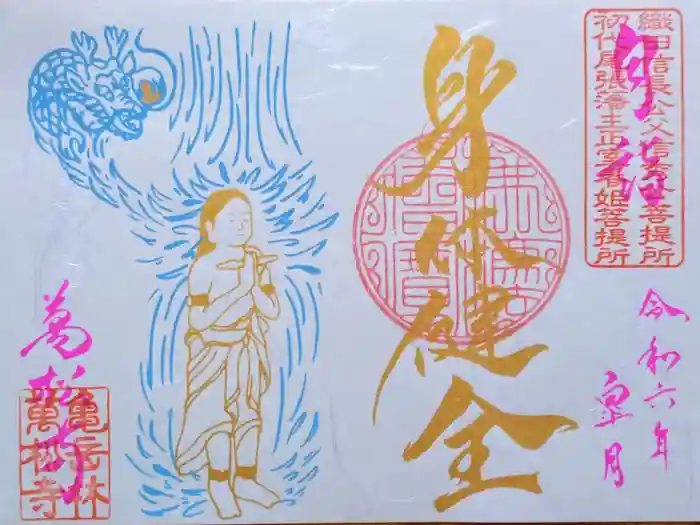 織田信長公父信秀公菩提所
初代尾張藩主正室春姫菩提所
身体健全
令和六年
皐月
萬松寺
亀岳林
萬松寺